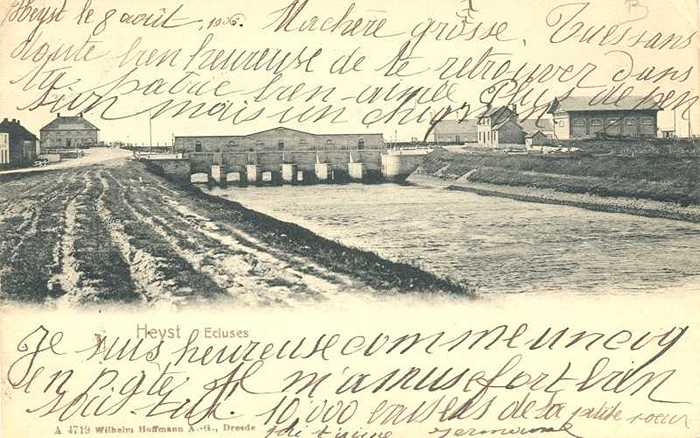 Heyst le 8 août, 1906. Ma chère grosse. Tu es sans
doute bien heureuse de te retrouver dans
ta patrie bien-aimée Plus de pen
sion mais un
Heyst Ecluses
Je suis heureuse comme un coq
en pâte. Je m'amuse fort bien
10,000 baisers de ta petite soeur
A 4719 Wilhelm Hoffmann A.-G., Dresde
Germaine